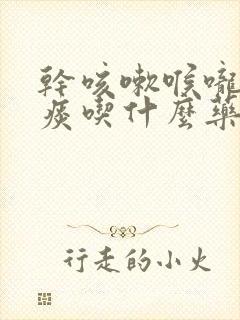 幹咳嗽喉嚨
痰喫什麼藥
行走的小火